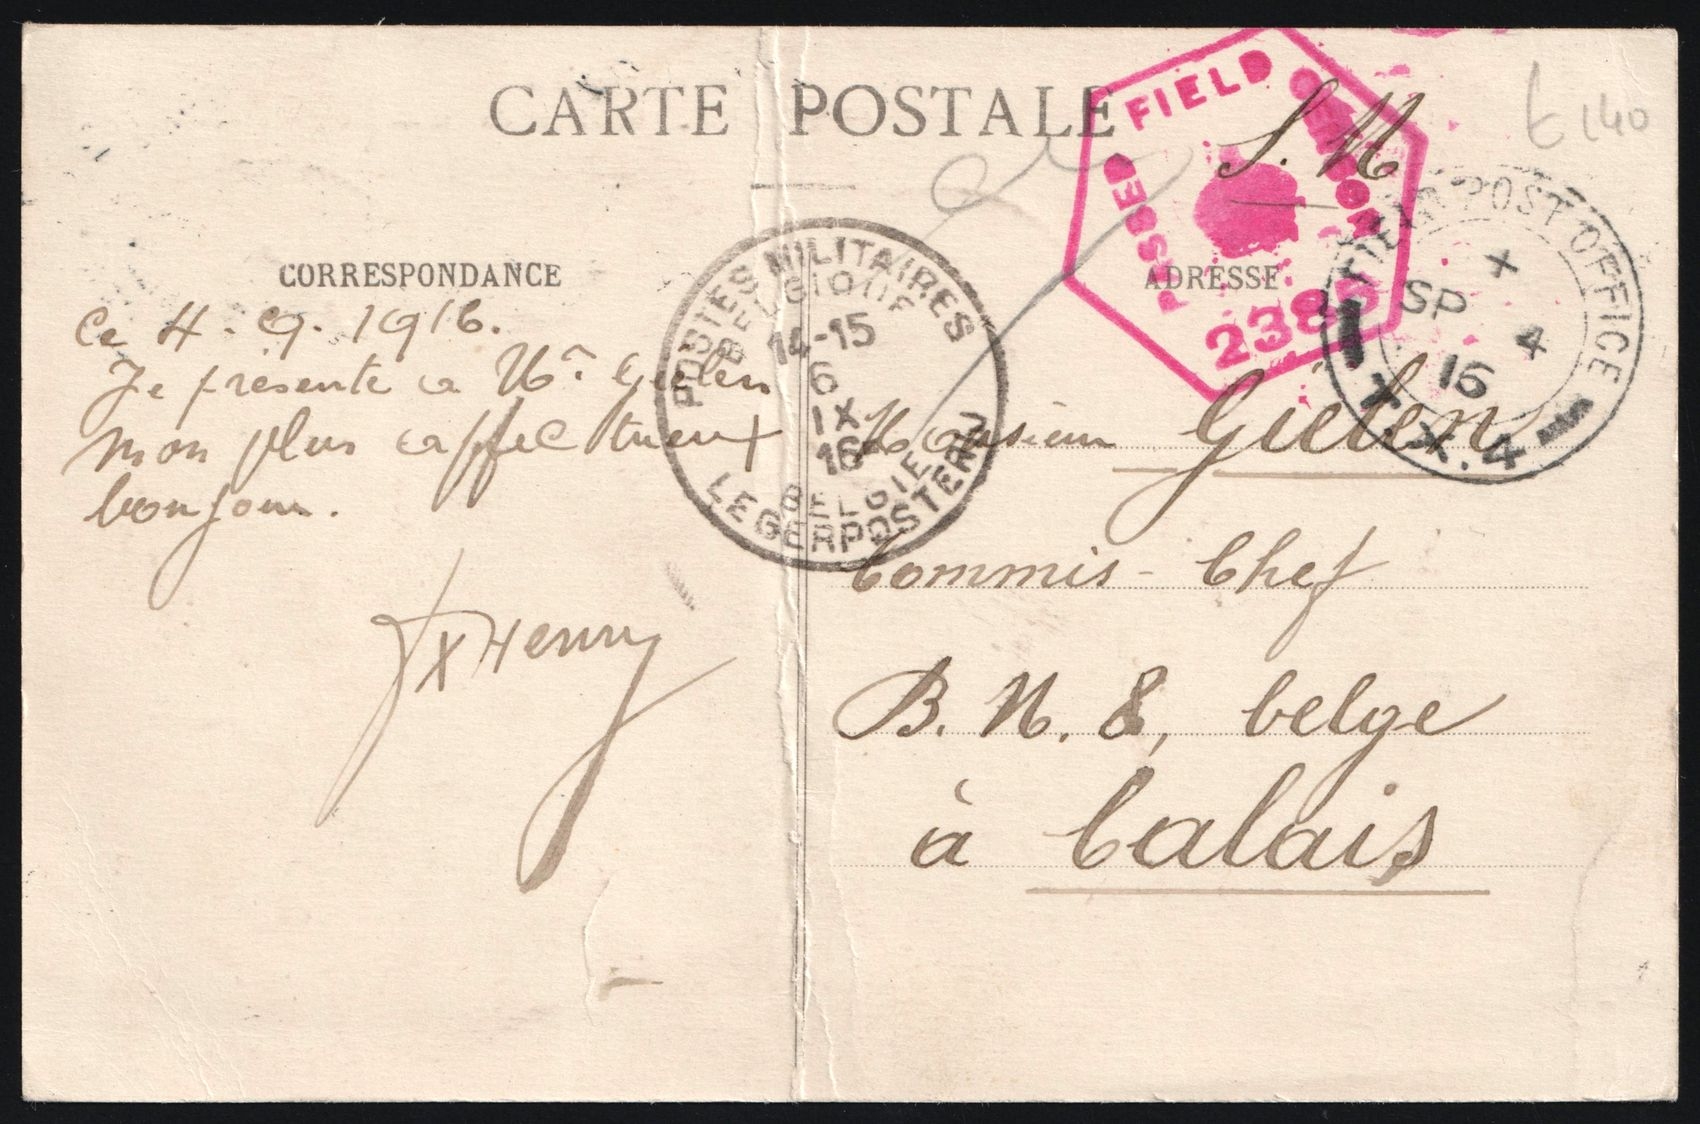 CARTE POSTALE
S. M
£ 140
PASSED FIELD CENSOR
238
FIELD POST OFFICE
X
SP 4
16
T.X.4
POSTES MILITAIRES
BELGIQUE
8 14-15
6
IX
16
BELGIE
LEGERPOSTERIJ
CORRESPONDANCE
Ce 4. 9. 1916.
Je présente a Mr Gielen
mon plus affectueux
bonjour.
Henry
ADRESSE
Monsieur Gielen
Commis-Chef
B. M. 8, belge
à Calais